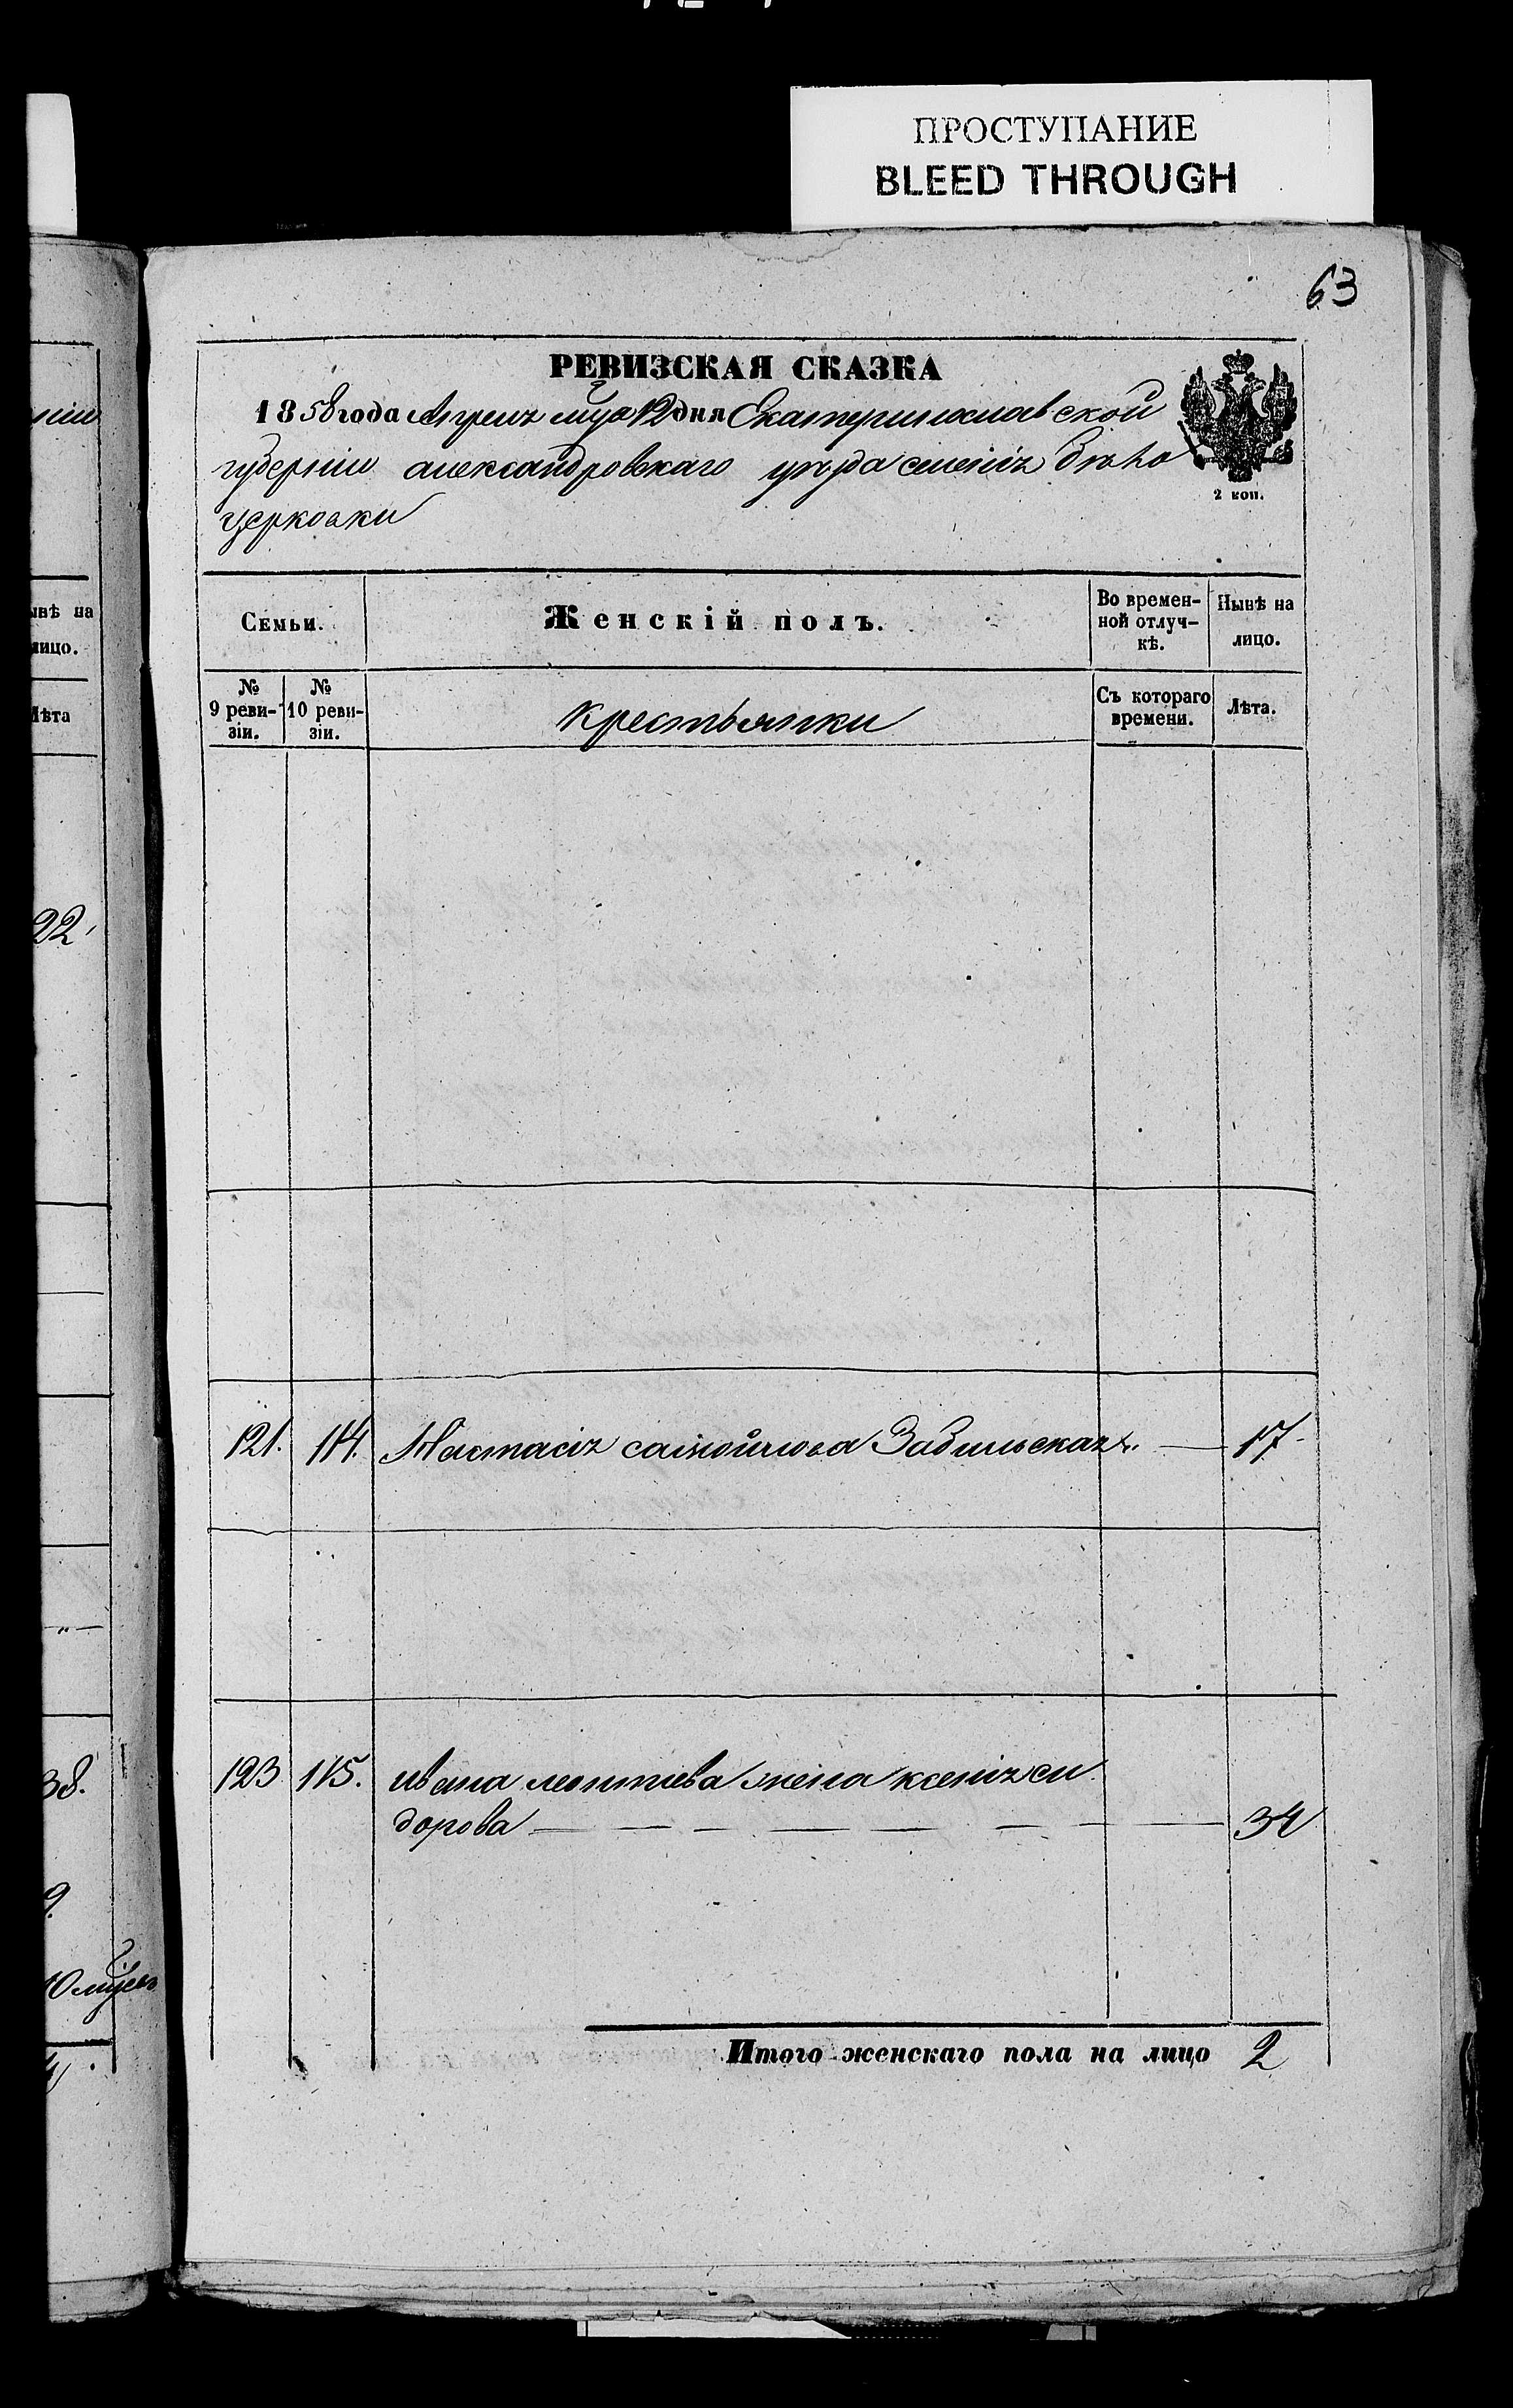 ПРОСТУПАНИЕ
BLEED THROUGH
63
РЕВИЗСКАЯ СКАЗКА
1858 года Апреля мца 12 дня Екатеринославской
губерніи александровскаго уезда селенія бѣло
церковки
2 коп.
Семьи.
Женскій полъ.
Во времен-
ной отлуч-
кѣ.
Нынѣ на
лицо.
№
9 реви-
зіи.
№
10 реви-
зіи.
крестьянки
Съ котораго
времени.
Лѣта.
121. 114. Настасія самойлова 17
123 115. ивана леонтіева жена ксенія си
дорова — — — — — — — 34
Итого женскаго пола на лицо 2
ынѣ на
лицо.
Лѣта
22
38.
9.